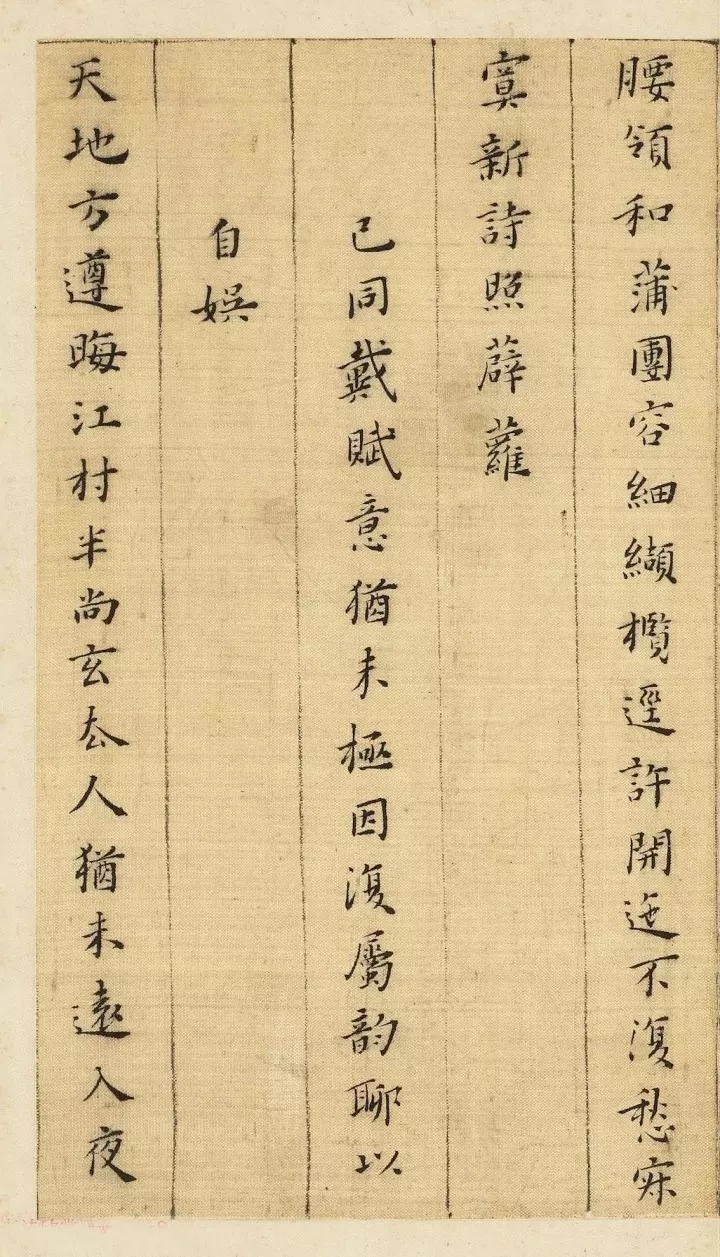 腰領和蒲團容細纈欖逕許開迤不復愁寐
寞新詩照薜蘿
已同戴賦意猶未極因復屬韵聊以
自娛
天地方遵晦江村半尚玄厺人猶未遠入夜